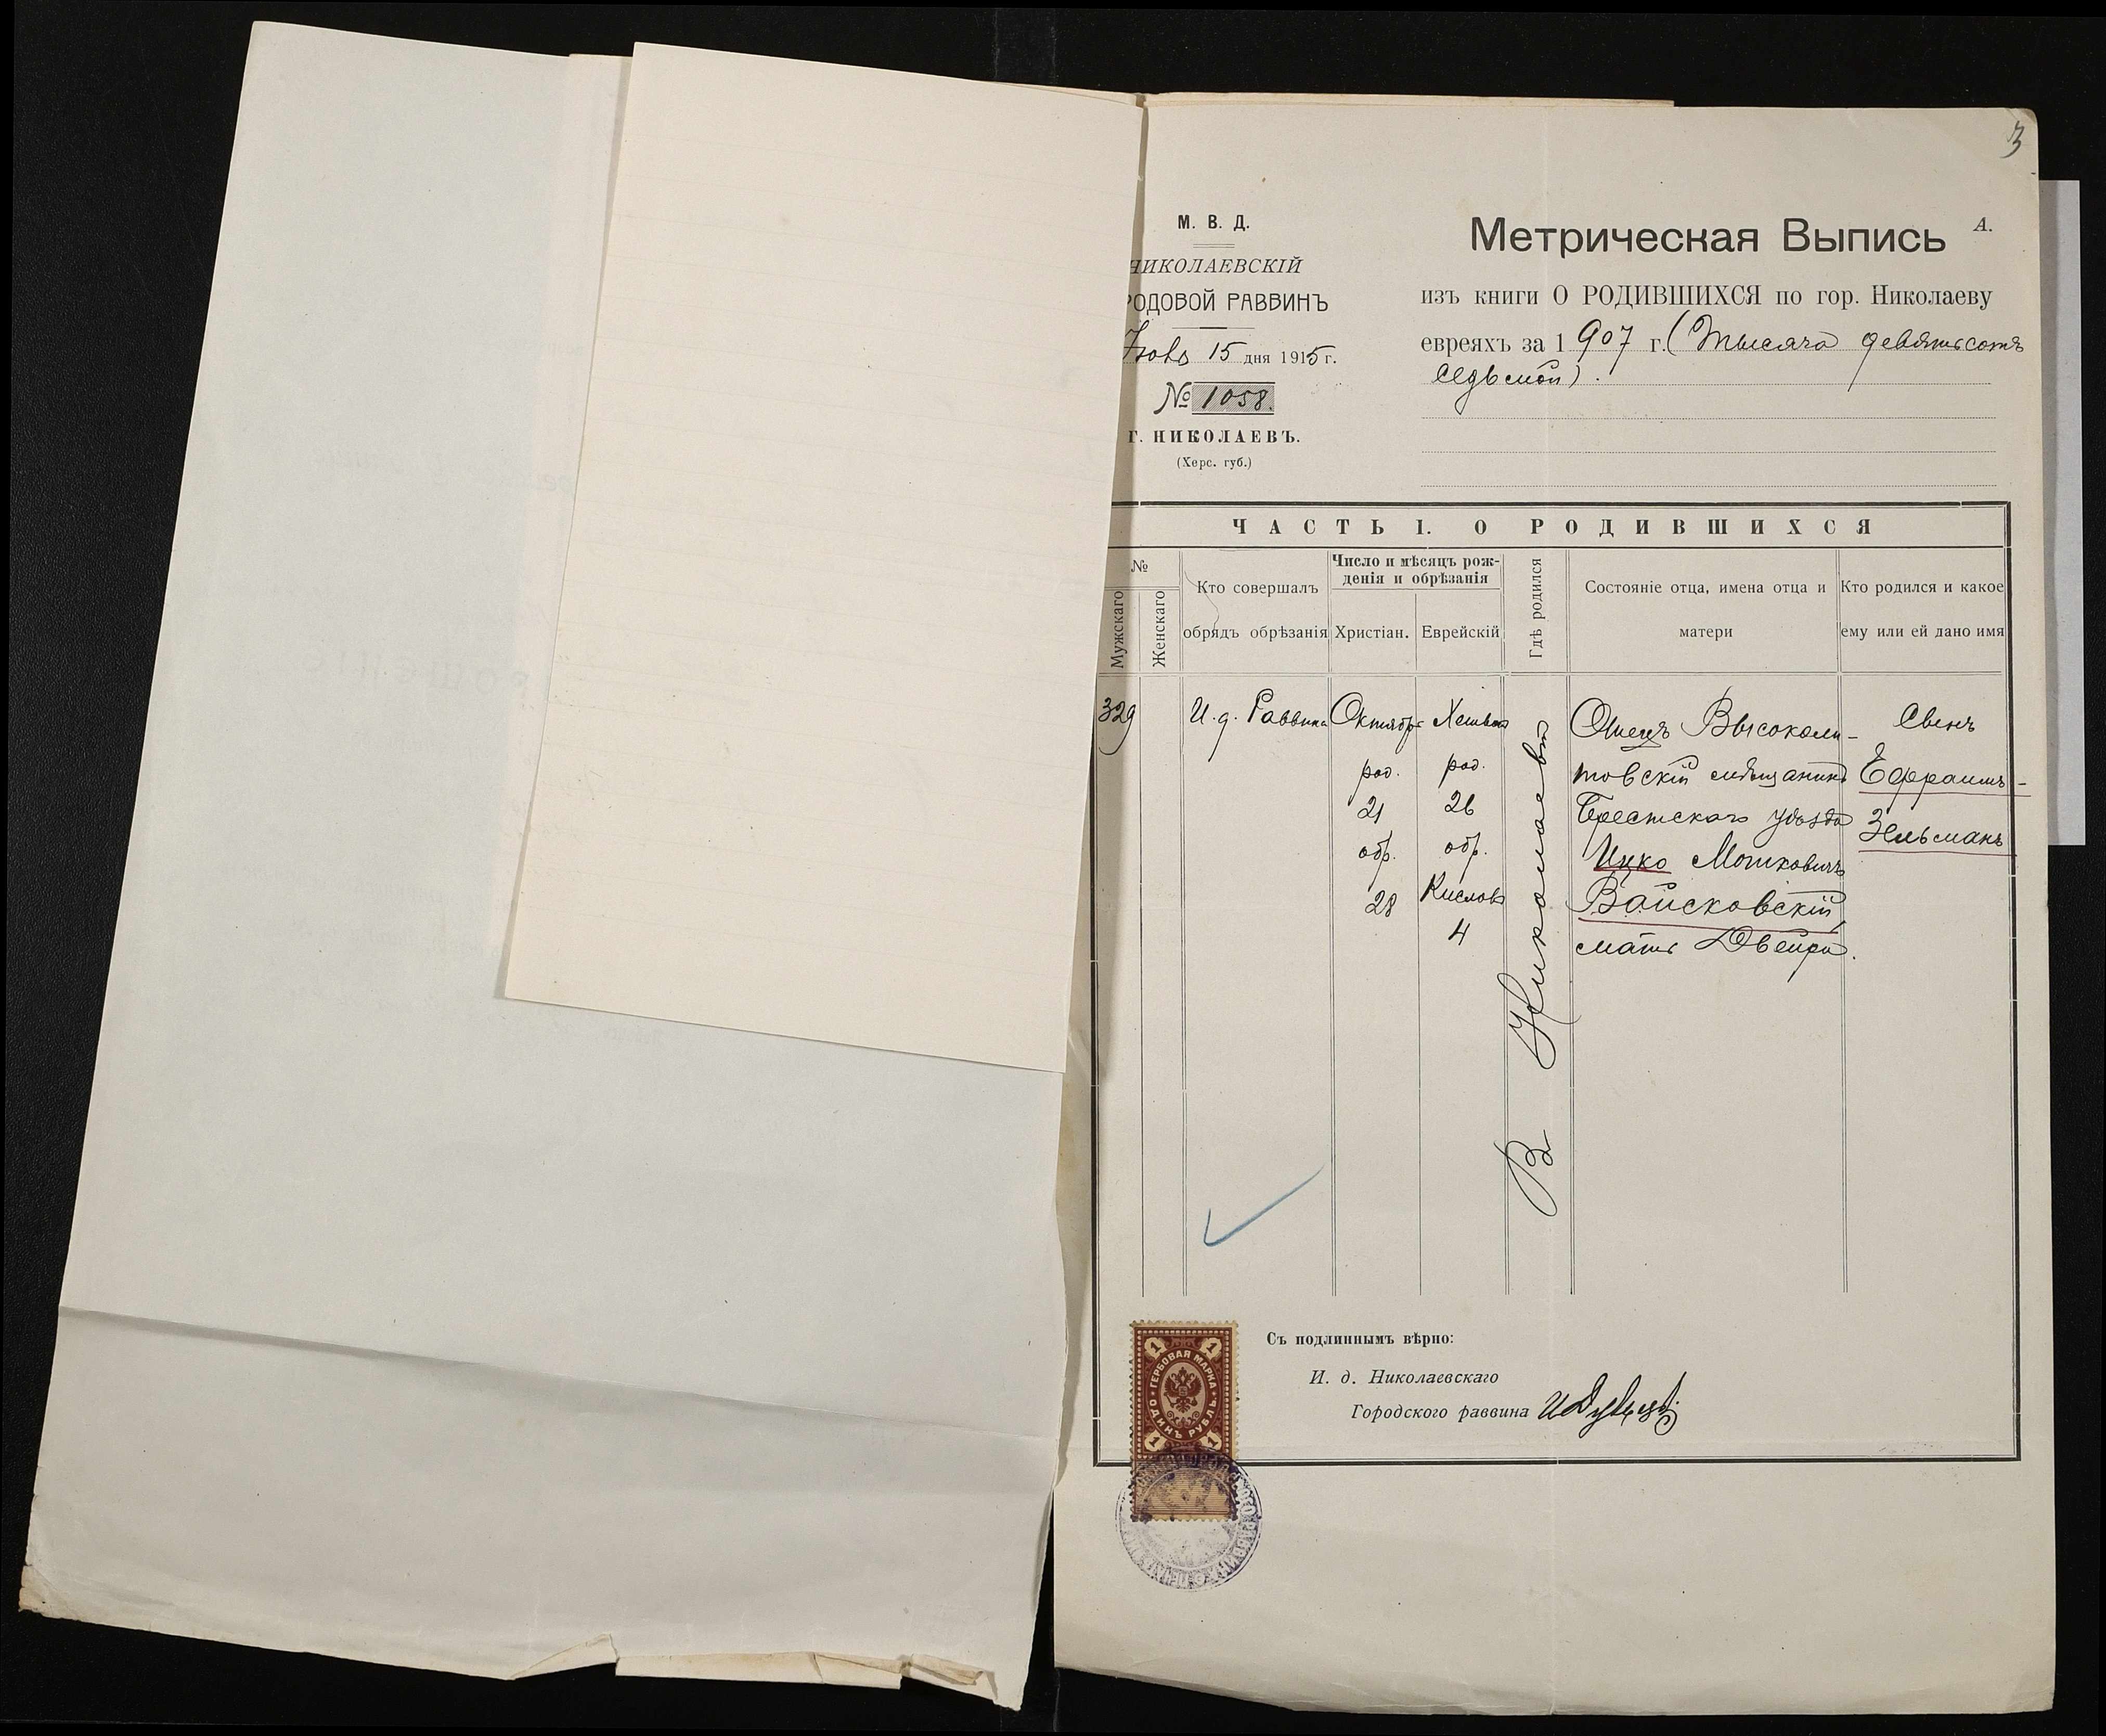 3
М. В. Д.
НИКОЛАЕВСКІЙ
РОДОВОЙ РАВВИНЪ
15 дня 1915 г.
№ 1058.
Г. НИКОЛАЕВЪ.
(Херс. губ.)
Метрическая Выпись А.
изъ книги О РОДИВШИХСЯ по гор. Николаеву
евреяхъ за 1907 г. (Тысяча девятьсотъ
седьмой).
ЧАСТЬ I. О РОДИВШИХСЯ
№
Мужскаго
Женскаго
Кто совершалъ
обрядъ обрѣзанія
Число и мѣсяцъ рож-
денія и обрѣзанія
Христіан.
Еврейскій
Гдѣ родился
Состояніе отца, имена отца и
матери
Кто родился и какое
ему или ей дано имя
329
И. д. Раввина
Октябрь
род.
21
обр.
28
Хешван
род.
26
обр.
Кислов
4
В Николаеве
Отецъ Высоколи-
товскій мѣщанинъ
Брестскаго уѣзда
Ицко Мошковичъ
Войсковскій,
мать Двейра.
Сынъ
Ефраимъ-
Зельманъ
1 1
ГЕРБОВАЯ МАРКА
ОДИНЪ РУБЛЬ
1 1
Съ подлиннымъ вѣрно:
И. д. Николаевскаго
Городского раввина